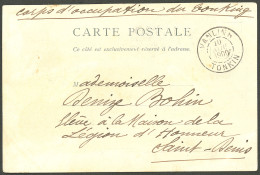 corps d'occupation du Tonking
CARTE POSTALE
Ce côté est exclusivement réservé à l'adresse.
HANOI
TONKIN
Mademoiselle
Denize Bohin
Elève à la Maison de la
Légion d'Honneur
Saint-Denis